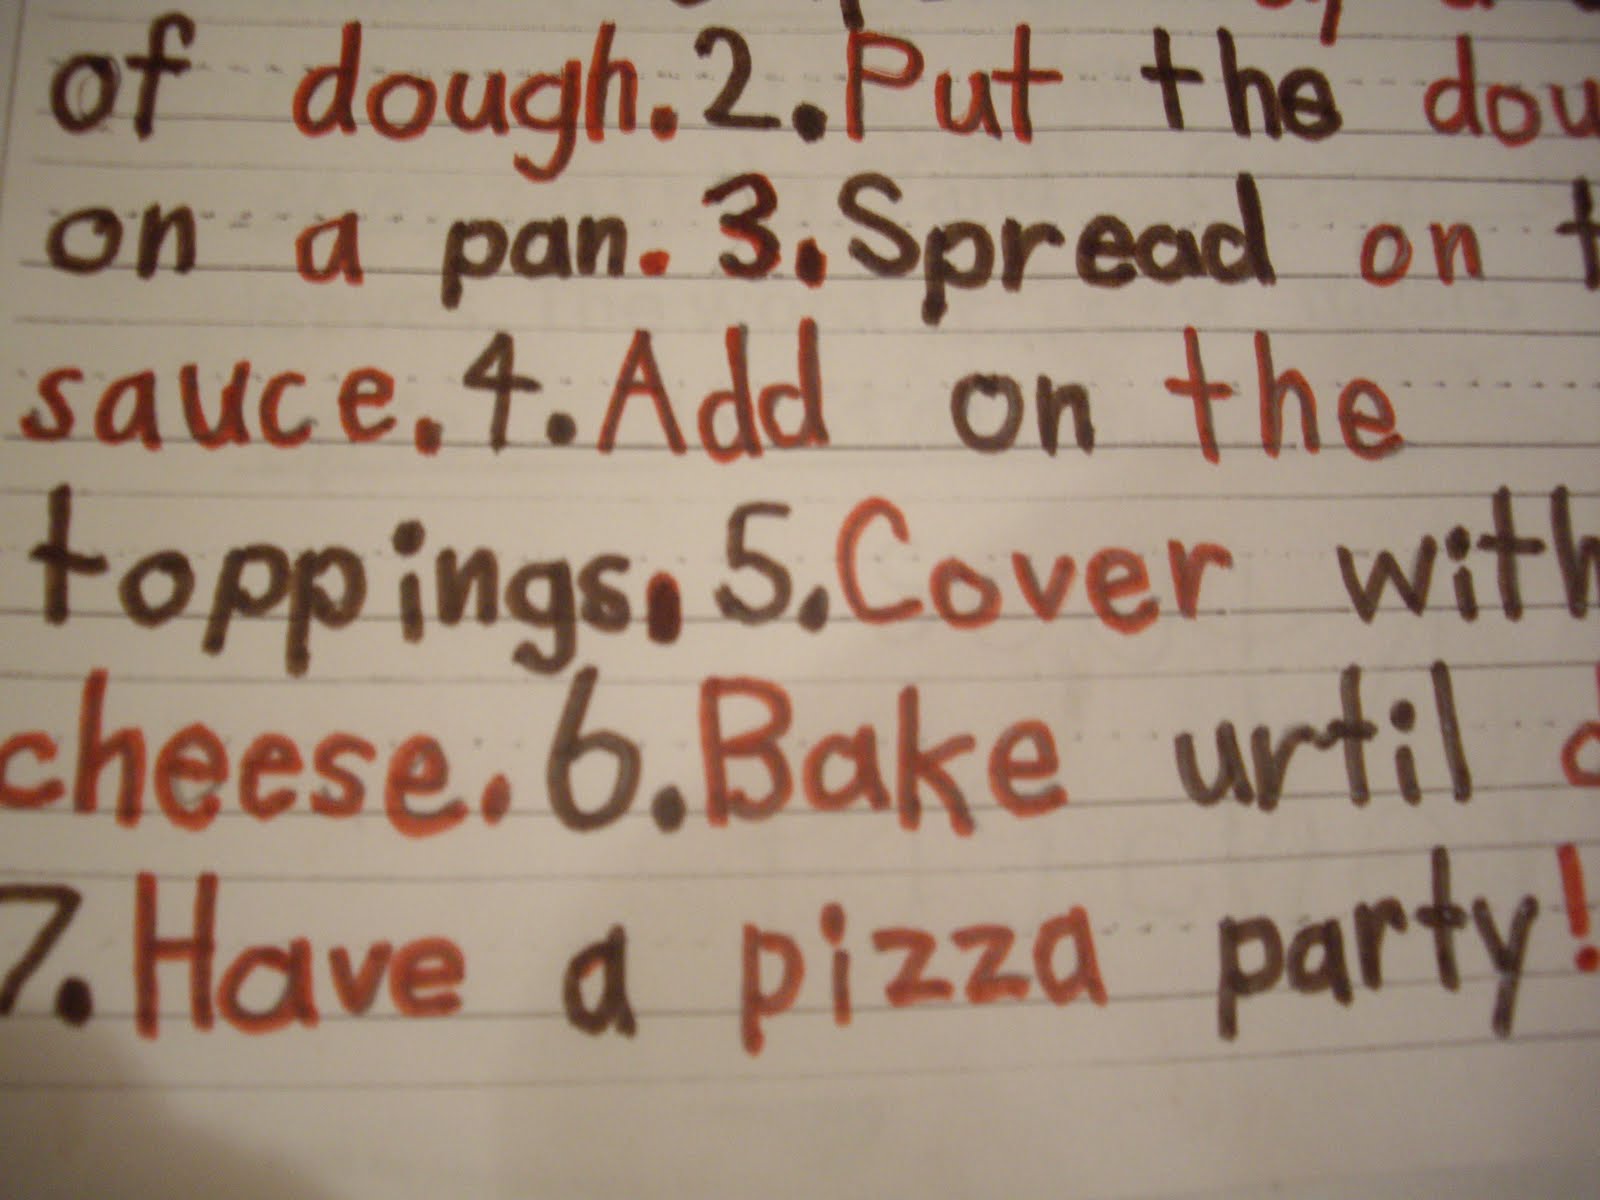 of dough. 2. Put the dou
on a pan. 3. Spread on t
sauce. 4. Add on the
toppings. 5. Cover with
cheese. 6. Bake urtil
7. Have a pizza party!